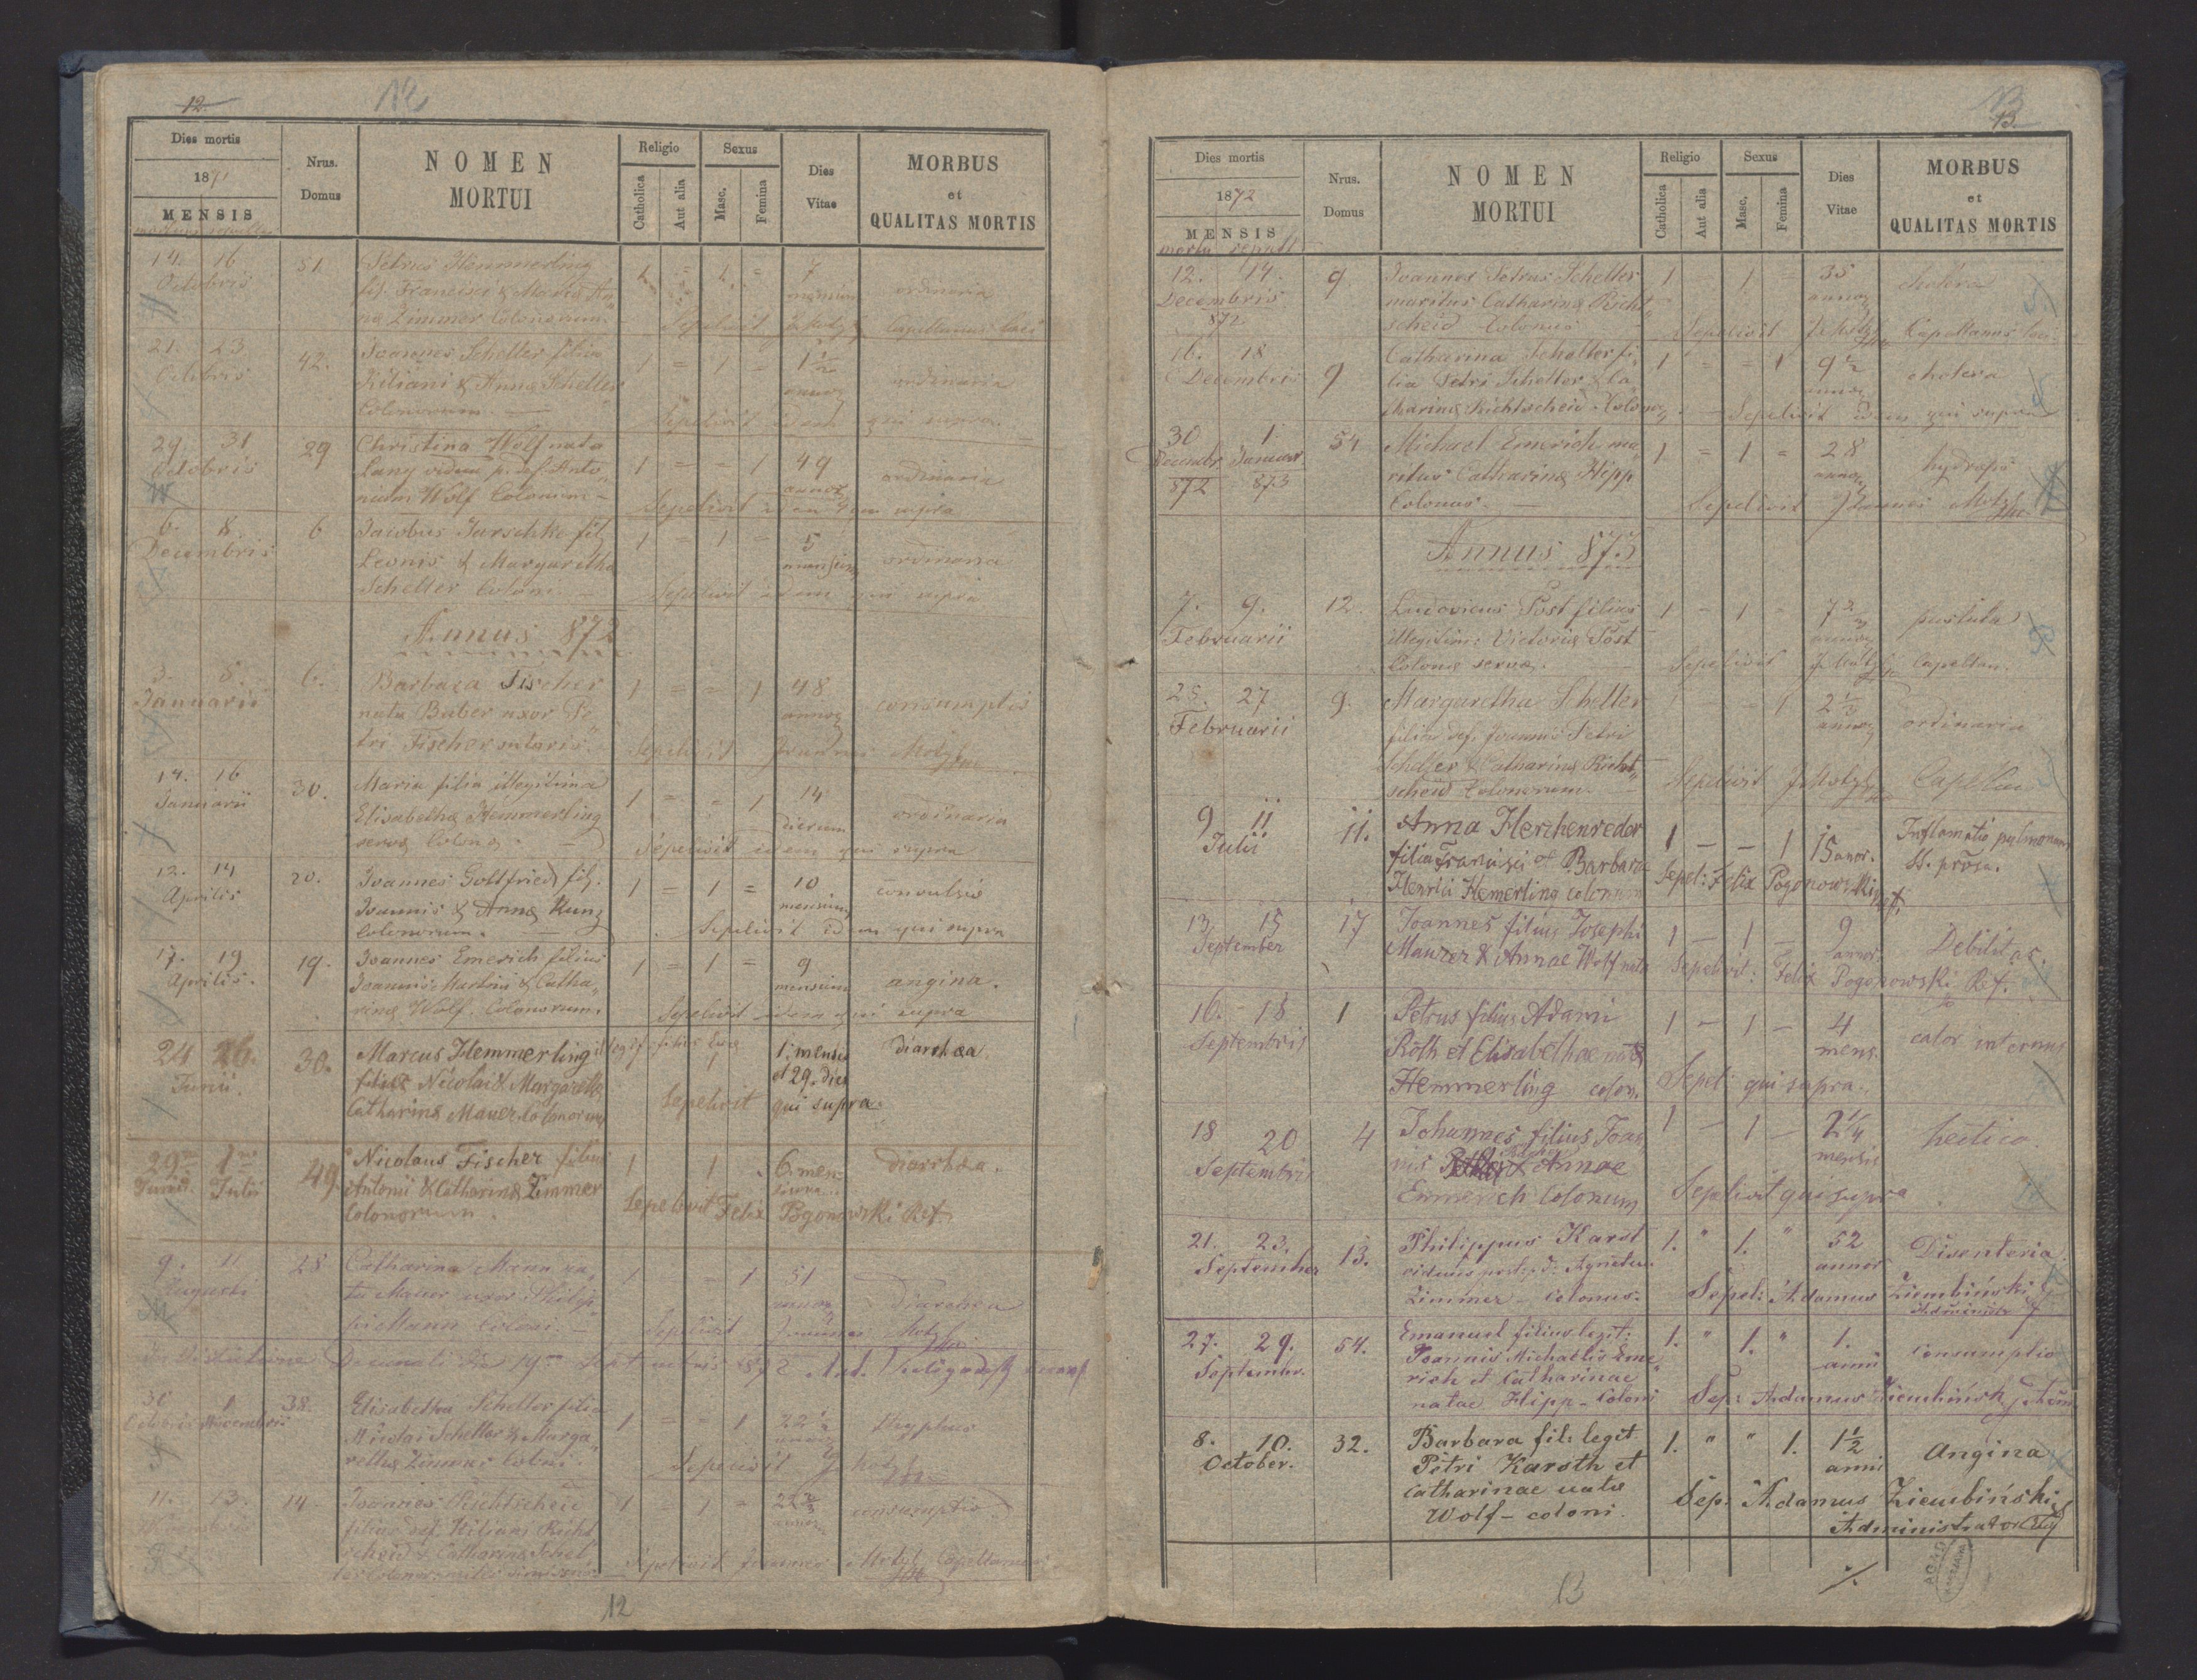 12.
12
Dies mortis
1871
MENSIS
Nrus.
Domus
NOMEN
MORTUI
Religio
Catholica
Aut alia
Sexus
Masc.
Femina
Dies
Vitae
MORBUS
et
QUALITAS MORTIS
14. 16
Octobris
51
Petrus Hemmerling
fil. Francisci & Mariæ An„
na Zimmer Colonorum.
1 = 1 =
7
mensium
ordinaria
Sepelivit Capellanus loci
21. 23
Octobris
42.
Joannes Scheller filius
Kiliani & Annæ Scheller
Colonorum.
1 = 1 =
1½
annor
ordinaria
Sepelivit idem qui supra
29. 31
Octobris
29
Christina Wolf nata
Lang vidua p. def. Anto„
nium Wolf Colonum
1 = = 1
49
annor
ordinaria
Sepelivit idem qui supra
6. 8
Decembris
6
Jacobus Jarschke fil.
Leonis & Margaretha
Scheller Colon.
1 = 1 =
5
mensium
ordinaria
Sepelivit idem qui supra
Annus 872
3. 5.
Januarii
6.
Barbara Fischer
nata Buber uxor Pe„
tri Fischer sutoris.
1 = = 1
48
annor
consumptio
Sepelivit Joannes Motyl
14. 16
Januarii
30.
Maria filia illegitima
Elisabethæ Hemmerling
servæ Colonæ
1 = = 1
14
dierum
ordinaria
Sepelivit idem qui supra
12. 14
Aprilis
20.
Joannes Gottfried fil.
Joannis & Annæ Kunz
Colonorum.
1 = 1 =
10
mensium
convulsio
Sepelivit idem qui supra
17. 19
Aprilis.
19.
Joannes Emerich filius
Joannis Martini & Catha„
rinæ Wolf. Colonorum.
1 = 1 =
9
mensium
angina.
Sepelivit idem qui supra
24 26.
Junii.
30.
Marcus Hemmerling
filius Nicolai & Margaretha
Catharinæ Mauer Colonorum
1. mensis
et 29. dies
diarrhæa.
Sepelivit qui supra
29 1
Junii. Julii
49.
Nicolaus Fischer filius
Antonii & Catharinæ Zimmer
Colonorum.
1 1
6. men=
sium
diarrhæa.
Sepelivit Felix Pogonowski Ref.
9. 11
Augusti
28
Catharina Mann na„
ta Mauer uxor Philip„
pi Mann Coloni.
1 1
51
annor
diarrhæa
Sepelivit Joannes Motyl
30 1
Octobris Novembris
38.
Elisabetha Scheller filia
Nicolai Scheller & Marga„
rethæ Zimmer Coloni.
1 = = 1
22½
typhus
Sepelivit J. Motyl
11. 13.
Novembris
14
Joannes Richtscheid
filius def. Kiliani Richt„
scheid & Catharinæ Schel„
1 = 1 =
consumptio
Sepelivit Joannes Motyl Capellanus
12
13
13.
Dies mortis
1872
MENSIS
mortu sepult
Nrus.
Domus
NOMEN
MORTUI
Religio
Catholica
Aut alia
Sexus
Masc.
Femina
Dies
Vitae
MORBUS
et
QUALITAS MORTIS
12. 14.
Decembris
872
9
Joannes Petrus Scheller
maritus Catharinæ Richt„
scheid Colonus
1 = 1 =
35
annor
cholera
Sepelivit J. Motyl Capellanus loci
16. 18
Decembris
9
Catharina Scheller fi„
lia Petri Scheller & Ca„
tharinæ Richtscheid Colonor.
1 = = 1
9½
annor
cholera
Sepelivit idem qui supra
30 1
Decembr. Januar.
872 873
54
Michael Emerich ma„
ritus Catharinæ Hipp
Colonus.
1 = 1 =
28
annor
hydrops
Sepelivit Joannes Motyl
Annus 873
7. 9.
Februarii
12.
Ludovicus Post filius
illegitim: Victoriæ Post
Colonæ servæ.
1 – 1 –
annor
pustula
Sepelivit J. Motyl Capellan.
25. 27
Februarii
9.
Margaretha Scheller
filia def. Joannis Petri
Scheller & Catharinæ Richt„
scheid Colonorum.
1 – – 1
annor
ordinaria
Sepelivit J. Motyl Capellan
9 11
Julii
11.
Anna Herchenreder
filia Francisci et Barbara
Henrici Hemerling colonum
1 – – 1
15 anor.
Inflamatio pulmonum
Sepel: Felix Pogonowski Ref.
13 15
September
17
Joannes filius Josephi
Maurer & Annae Wolf nata
1 – 1 –
9
annor.
Debilitas.
Sepelivit: Felix Pogonowski Ref.
16. 18
Septembris
1
Petrus filius Adami
Roth et Elisabethae natæ
Hemmerling colon.
1 – 1 –
4
mens.
calor internus
Sepel: qui supra.
18 20
Septembris
4
Johannes filius Joan„
nis & Annae
Emmerich Colonum
1 – 1 –
2¼
mensis
hectica.
Sepelivit qui supra
21. 23.
September
13.
Philippus Karst
viduus post: d: Agnetem
Zimmer – Colonus.
1. " 1. "
52
annor
Disenteria.
Sepel: Adamus Ziembiński
Administr
27. 29.
September.
54.
Emanuel filius legit:
Joannis Michaelis Eme„
rich et Catharinae
natae Hipp – Coloni
1. " 1. "
1.
anni
Consumptio
Sep: Adamus Ziembiński Adm
8. 10.
October.
32.
Barbara fil: legit
Petri Karsth et
Catharinae natæ
Wolf – coloni.
1. " " 1.
1½
anni
Angina
Sep. Adamus Ziembiński
Administrator
13